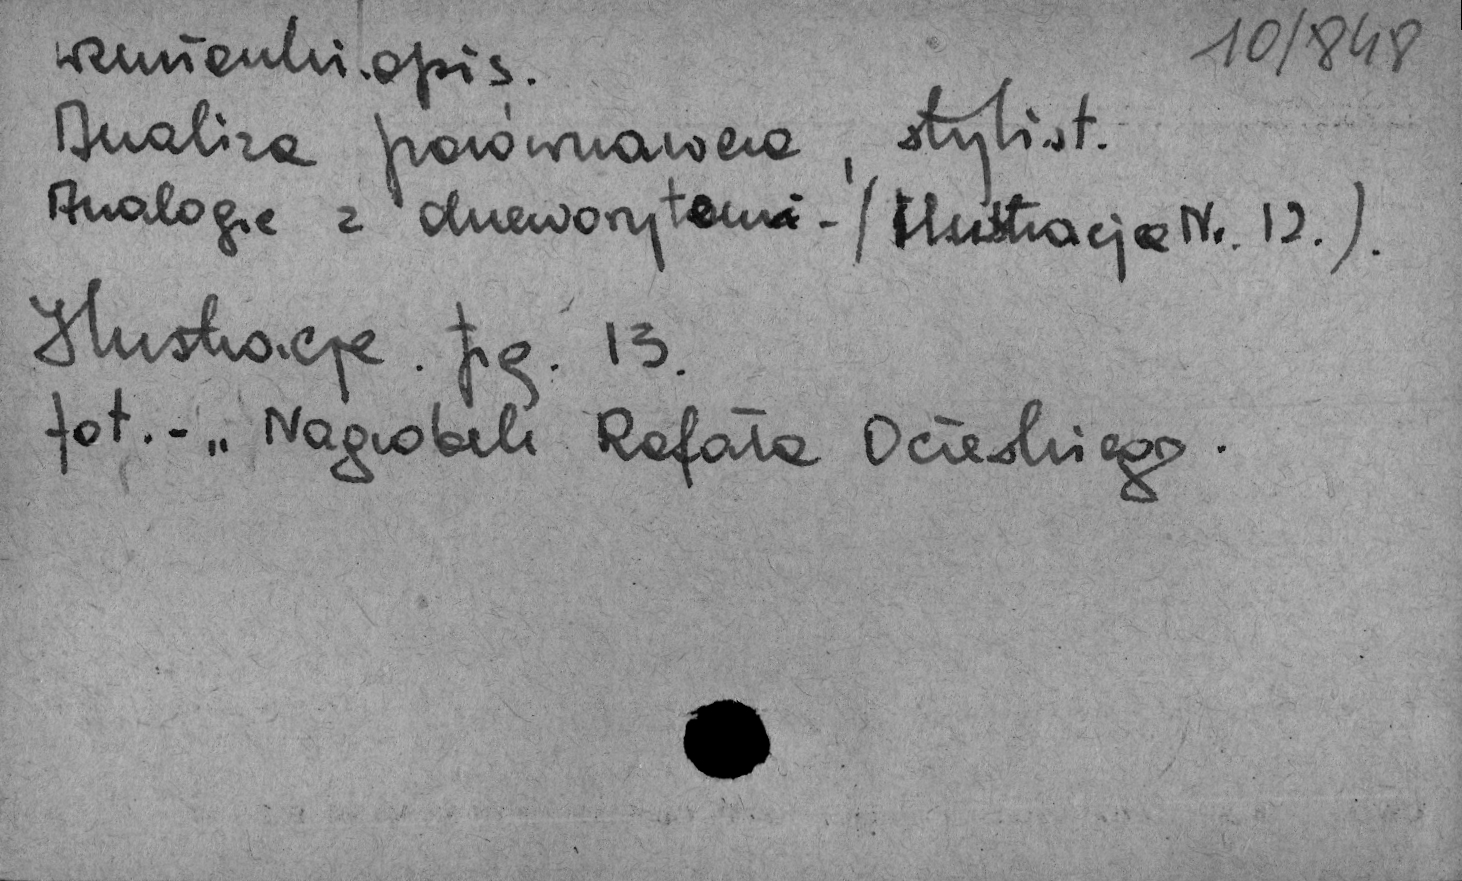 10/848
wzmianki.opis.
Analiza porównawcza, stylist.
Analogie z drzeworytami - (Ilustracja Nr. 12.).
Ilustracje. fig. 13.
fot. - „Nagrobek Rafała Ocieskiego.